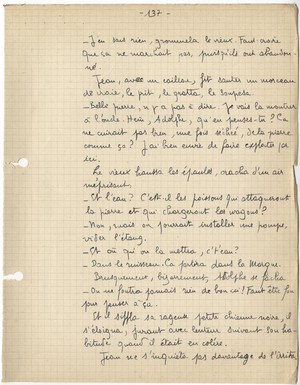 - 137 -
- J'en sais rien, grommela le vieux. Faut croire
que ça ne marchait pas, puisqu'ils ont abandon-
né.
Jean, avec un caillou, fit sauter un morceau
de craie, le prit, le gratta, le soupesa.
- Belle pierre, n'y a pas à dire. Je vais la montrer
à l'oncle. Hein, Adolphe, qu'en penses-tu? Ça
ne cuirait pas bien, une fois séchée, de la pierre
comme ça? J'ai bien envie de faire exploiter par
ici.
Le vieux haussa les épaules, cracha d'un air
méprisant.
- Et l'eau? C'est-il les poissons qui attaqueront
la pierre et qui chargeront les wagons?
- Non, mais on pourrait installer une pompe,
vider l'étang.
- Et où qu'on la mettra, c't'eau?
- Dans le ruisseau. Ça partira dans la Morgue.
Brusquement, bizarrement, Adolphe se fâcha
- On ne foutra jamais rien de bon ici! Faut être fou
pour penser à ça.
Et il siffla sa rageuse petite chienne noire, il
s'éloigna, jurant avec lenteur suivant son ha-
bitude quand il était en colère.
Jean ne s'inquiéta pas davantage de l'